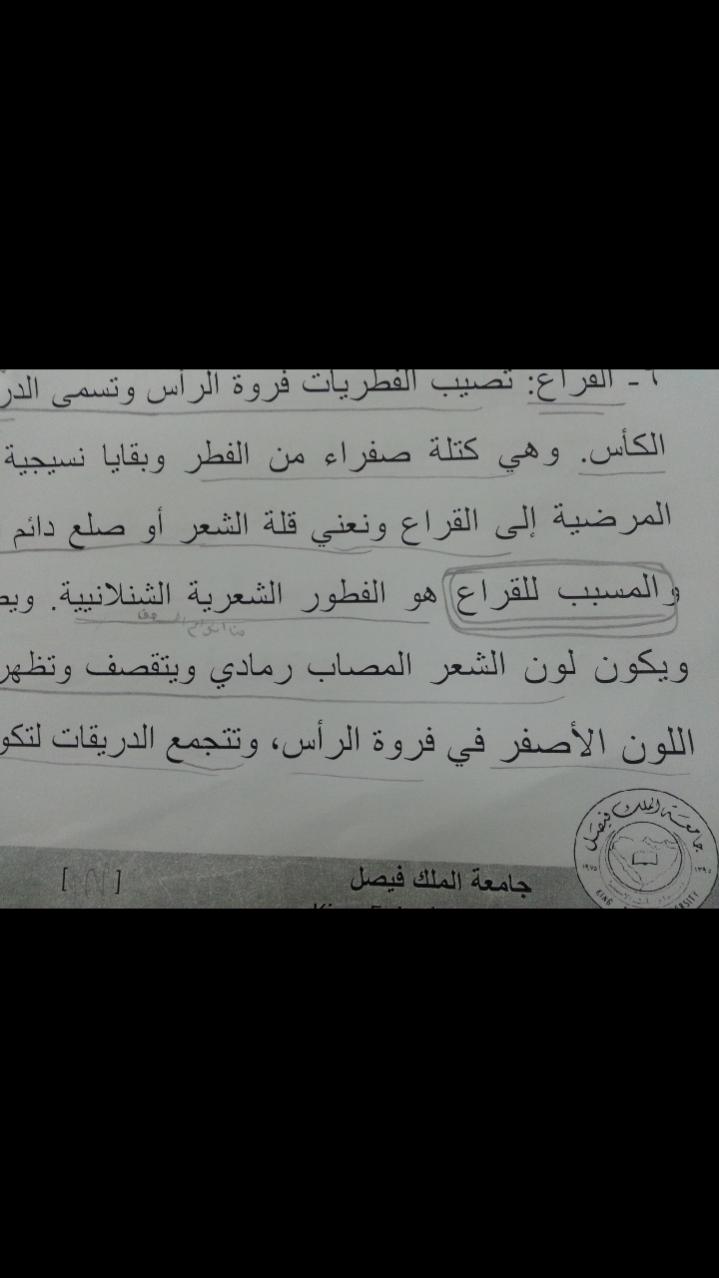 ٦- القراع: تصيب الفطريات فروة الرأس وتسمى
الكأس. وهي كتلة صفراء من الفطر وبقايا نسيجية
المرضية إلى القراع ونعني قلة الشعر أو صلع دائم
والمسبب للقراع هو الفطور الشعرية الشنلانيية.
ويكون لون الشعر المصاب رمادي ويتقصف وتظهر
اللون الأصفر في فروة الرأس، وتتجمع الدريقات
جامعة الملك فيصل
جامعة الملك فيصل